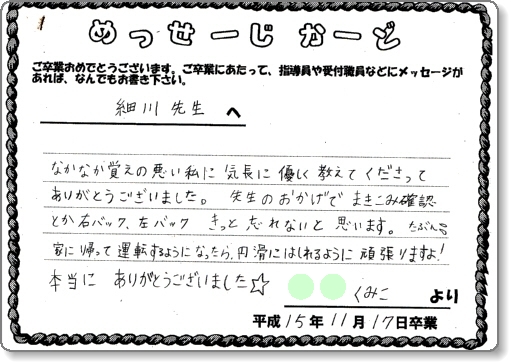 めっせーじかーど
ご卒業おめでとうございます。ご卒業にあたって、指導員や受付職員などにメッセージが
あれば、なんでもお書き下さい。
細川先生へ
なかなか覚えの悪い私に気長に優しく教えてくださって
ありがとうございました。先生のおかげでまきこみ確認
とか右バック、左バックきっと忘れないと思います。たぶん。
家に帰って運転するようになったら、円滑にはしれるように頑張りますよ!
本当にありがとうございました☆
くみこより
平成15年11月17日卒業